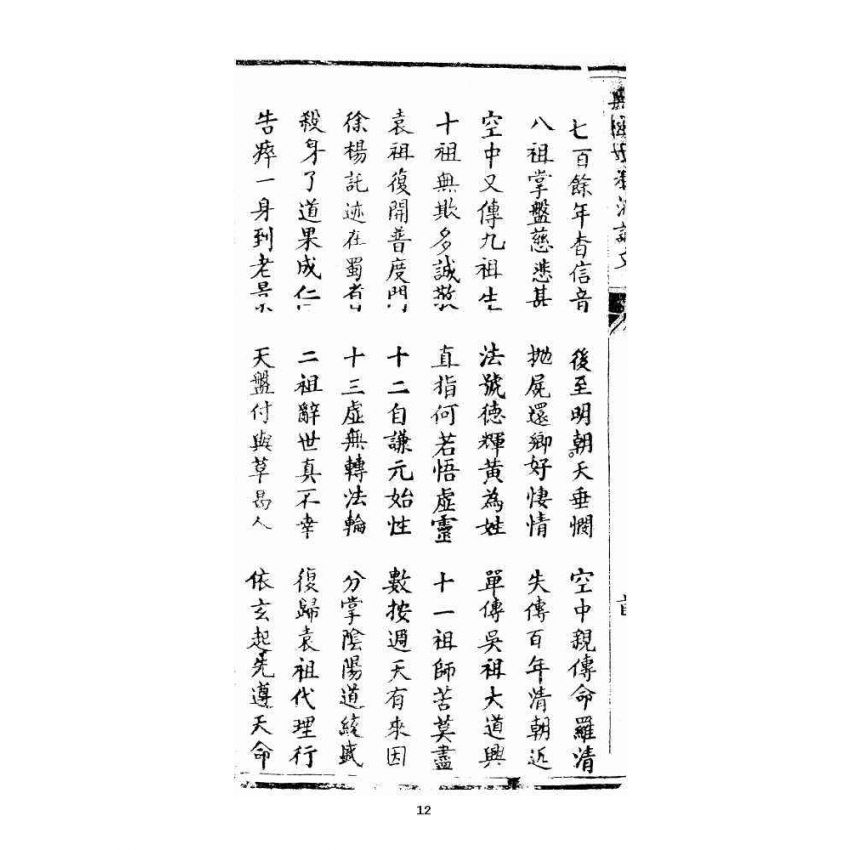 七百餘年杳信音 後至明朝天垂憫 空中親傳命羅清
八祖掌盤慈悲甚 拋屍還鄉好悽情 失傳百年清朝近
空中又傳九祖生 法號德輝黃為姓 單傳吳祖大道興
十祖無欺多誠敬 直指何若悟虛靈 十一祖師苦莫盡
袁祖復開普度門 十二自謙元始性 數按週天有來因
徐楊託迹在蜀省 十三虛無轉法輪 分掌陰陽道綫盛
殺身了道果成仁 二祖辭世真不幸 復歸袁祖代理行
告瘁一身到老景 天盤付與草昜人 依玄起先遵天命
12